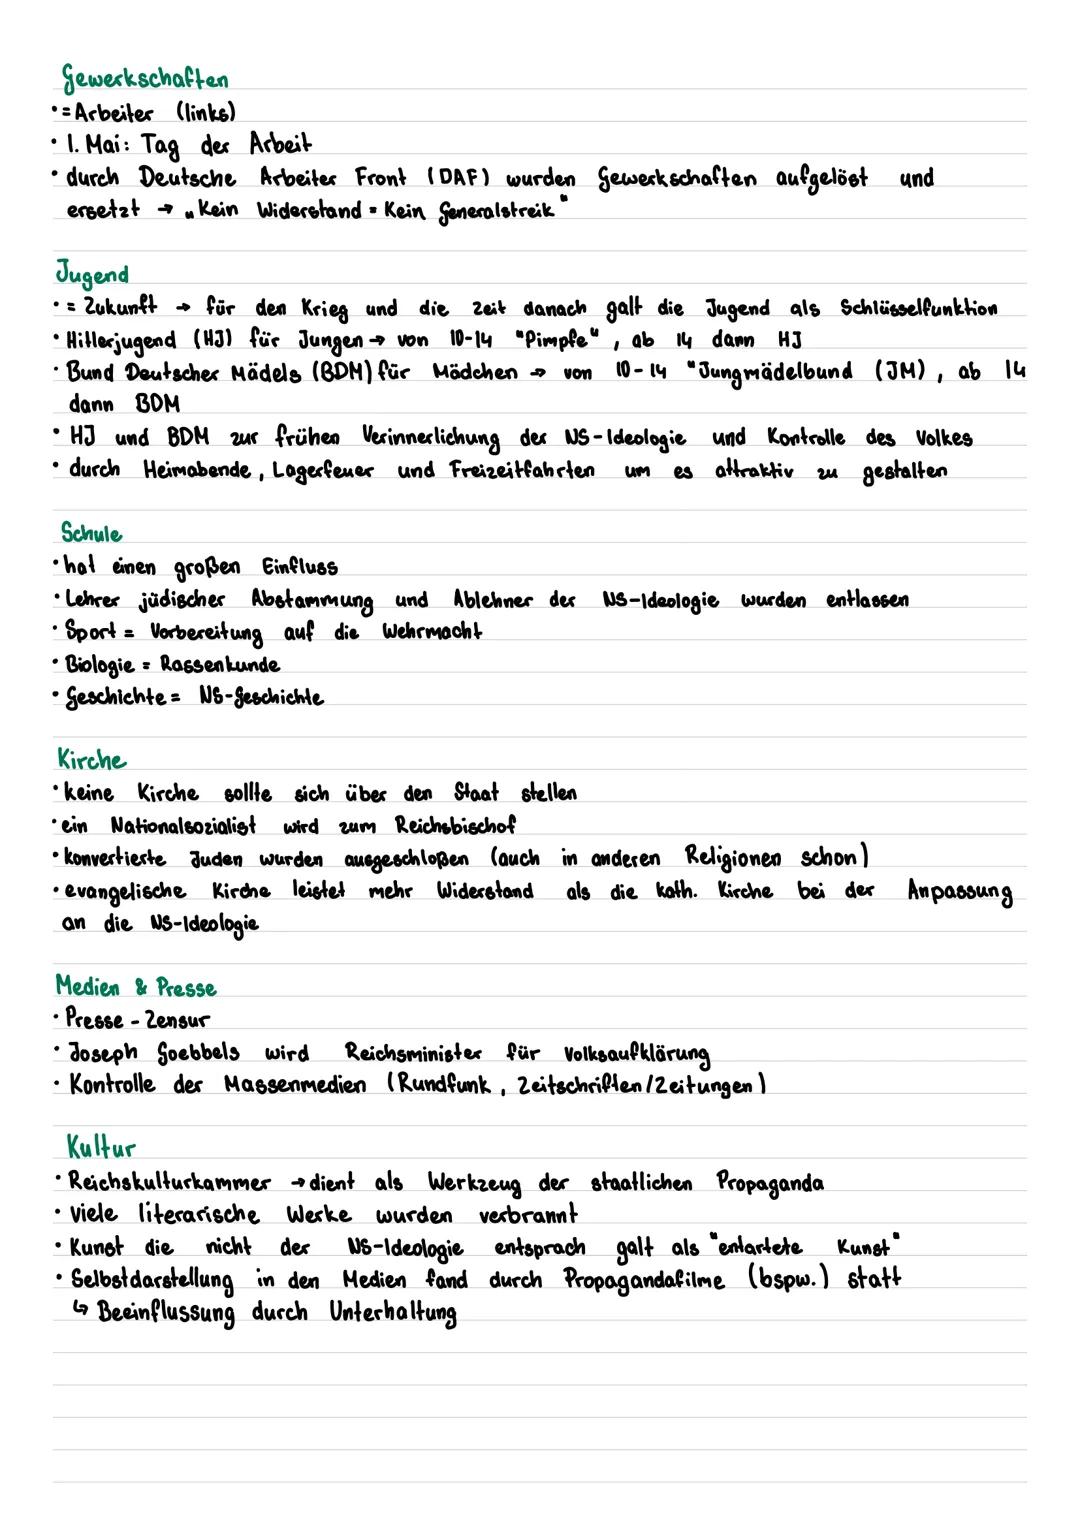 Gewerkschaften
• = Arbeiter (links)
• 1. Mai: Tag der Arbeit
• durch Deutsche Arbeiter Front (DAF) wurden Gewerkschaften aufgelöst und
ersetzt → „Kein Widerstand = Kein Generalstreik"
Jugend
• = Zukunft → für den Krieg und die Zeit danach galt die Jugend als Schlüsselfunktion
• Hitlerjugend (HJ) für Jungen → von 10-14 "Pimpfe", ab 14 dann HJ
• Bund Deutscher Mädels (BDM) für Mädchen → von 10-14 "Jungmädelbund (JM), ab 14
dann BDM
• HJ und BDM zur frühen Verinnerlichung der NS-Ideologie und Kontrolle des Volkes
• durch Heimabende, Lagerfeuer und Freizeitfahrten um es attraktiv zu gestalten
Schule
• hat einen großen Einfluss
• Lehrer jüdischer Abstammung und Ablehner der NS-Ideologie wurden entlassen
• Sport = Vorbereitung auf die Wehrmacht
• Biologie = Rassenkunde
• Geschichte = NS-Geschichte
Kirche
• keine Kirche sollte sich über den Staat stellen
• ein Nationalsozialist wird zum Reichsbischof
• konvertierte Juden wurden ausgeschloßen (auch in anderen Religionen schon)
• evangelische Kirche leistet mehr Widerstand als die kath. Kirche bei der Anpassung
an die NS-Ideologie
Medien & Presse
• Presse - Zensur
• Joseph Goebbels wird Reichsminister für Volksaufklärung
• Kontrolle der Massenmedien (Rundfunk, Zeitschriften/Zeitungen)
Kultur
• Reichskulturkammer → dient als Werkzeug der staatlichen Propaganda
• viele literarische Werke wurden verbrannt
• Kunst die nicht der NS-Ideologie entsprach galt als "entartete Kunst"
• Selbstdarstellung in den Medien fand durch Propagandafilme (bspw.) statt
↳ Beeinflussung durch Unterhaltung